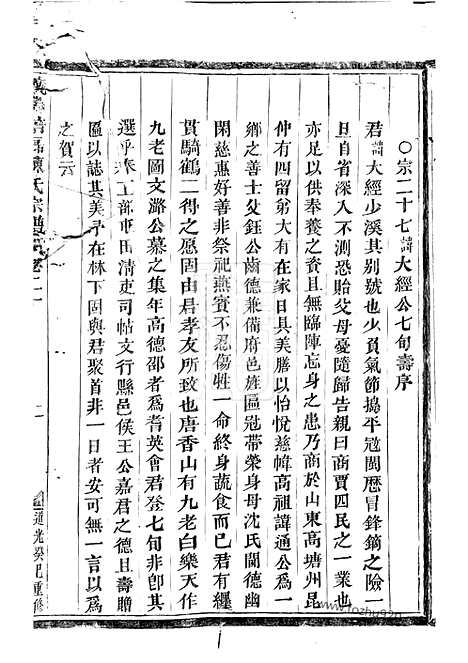 ○宗二十七諱大經公七旬壽序
君諱大經少溪其别號也少負氣節搗平冦閩歷冒鋒鏑之險一
旦自省深入不測恐貽父母憂隨歸告親曰商賈四民之一業也
亦足以供奉養之資且無臨陣忘身之患乃商於山東高塘州昆
仲有四留弟大有在家日具美膳以怡悅慈幃高祖諱通公爲一
鄉之善士父鈺公齒德兼備府邑旌匾冠帶榮身母沈氏閫德幽
閑慈惠好善非祭祀燕賓不忍傷牲一命終身蔬食而已君有纒
貫騎鶴二得之愿固由君孝友所致也唐香山有九老白樂天作
九老圖文潞公慕之集年高德邵者爲耆英會君登七旬非卽其
選乎奉工部屯田清吏司帖文行縣邑侯王公嘉君之德且壽贈
匾以誌其美予在林下固與君聚首非一日者安可無一言以爲
之賀云
陳氏宗譜
二
道光癸巳重修
1